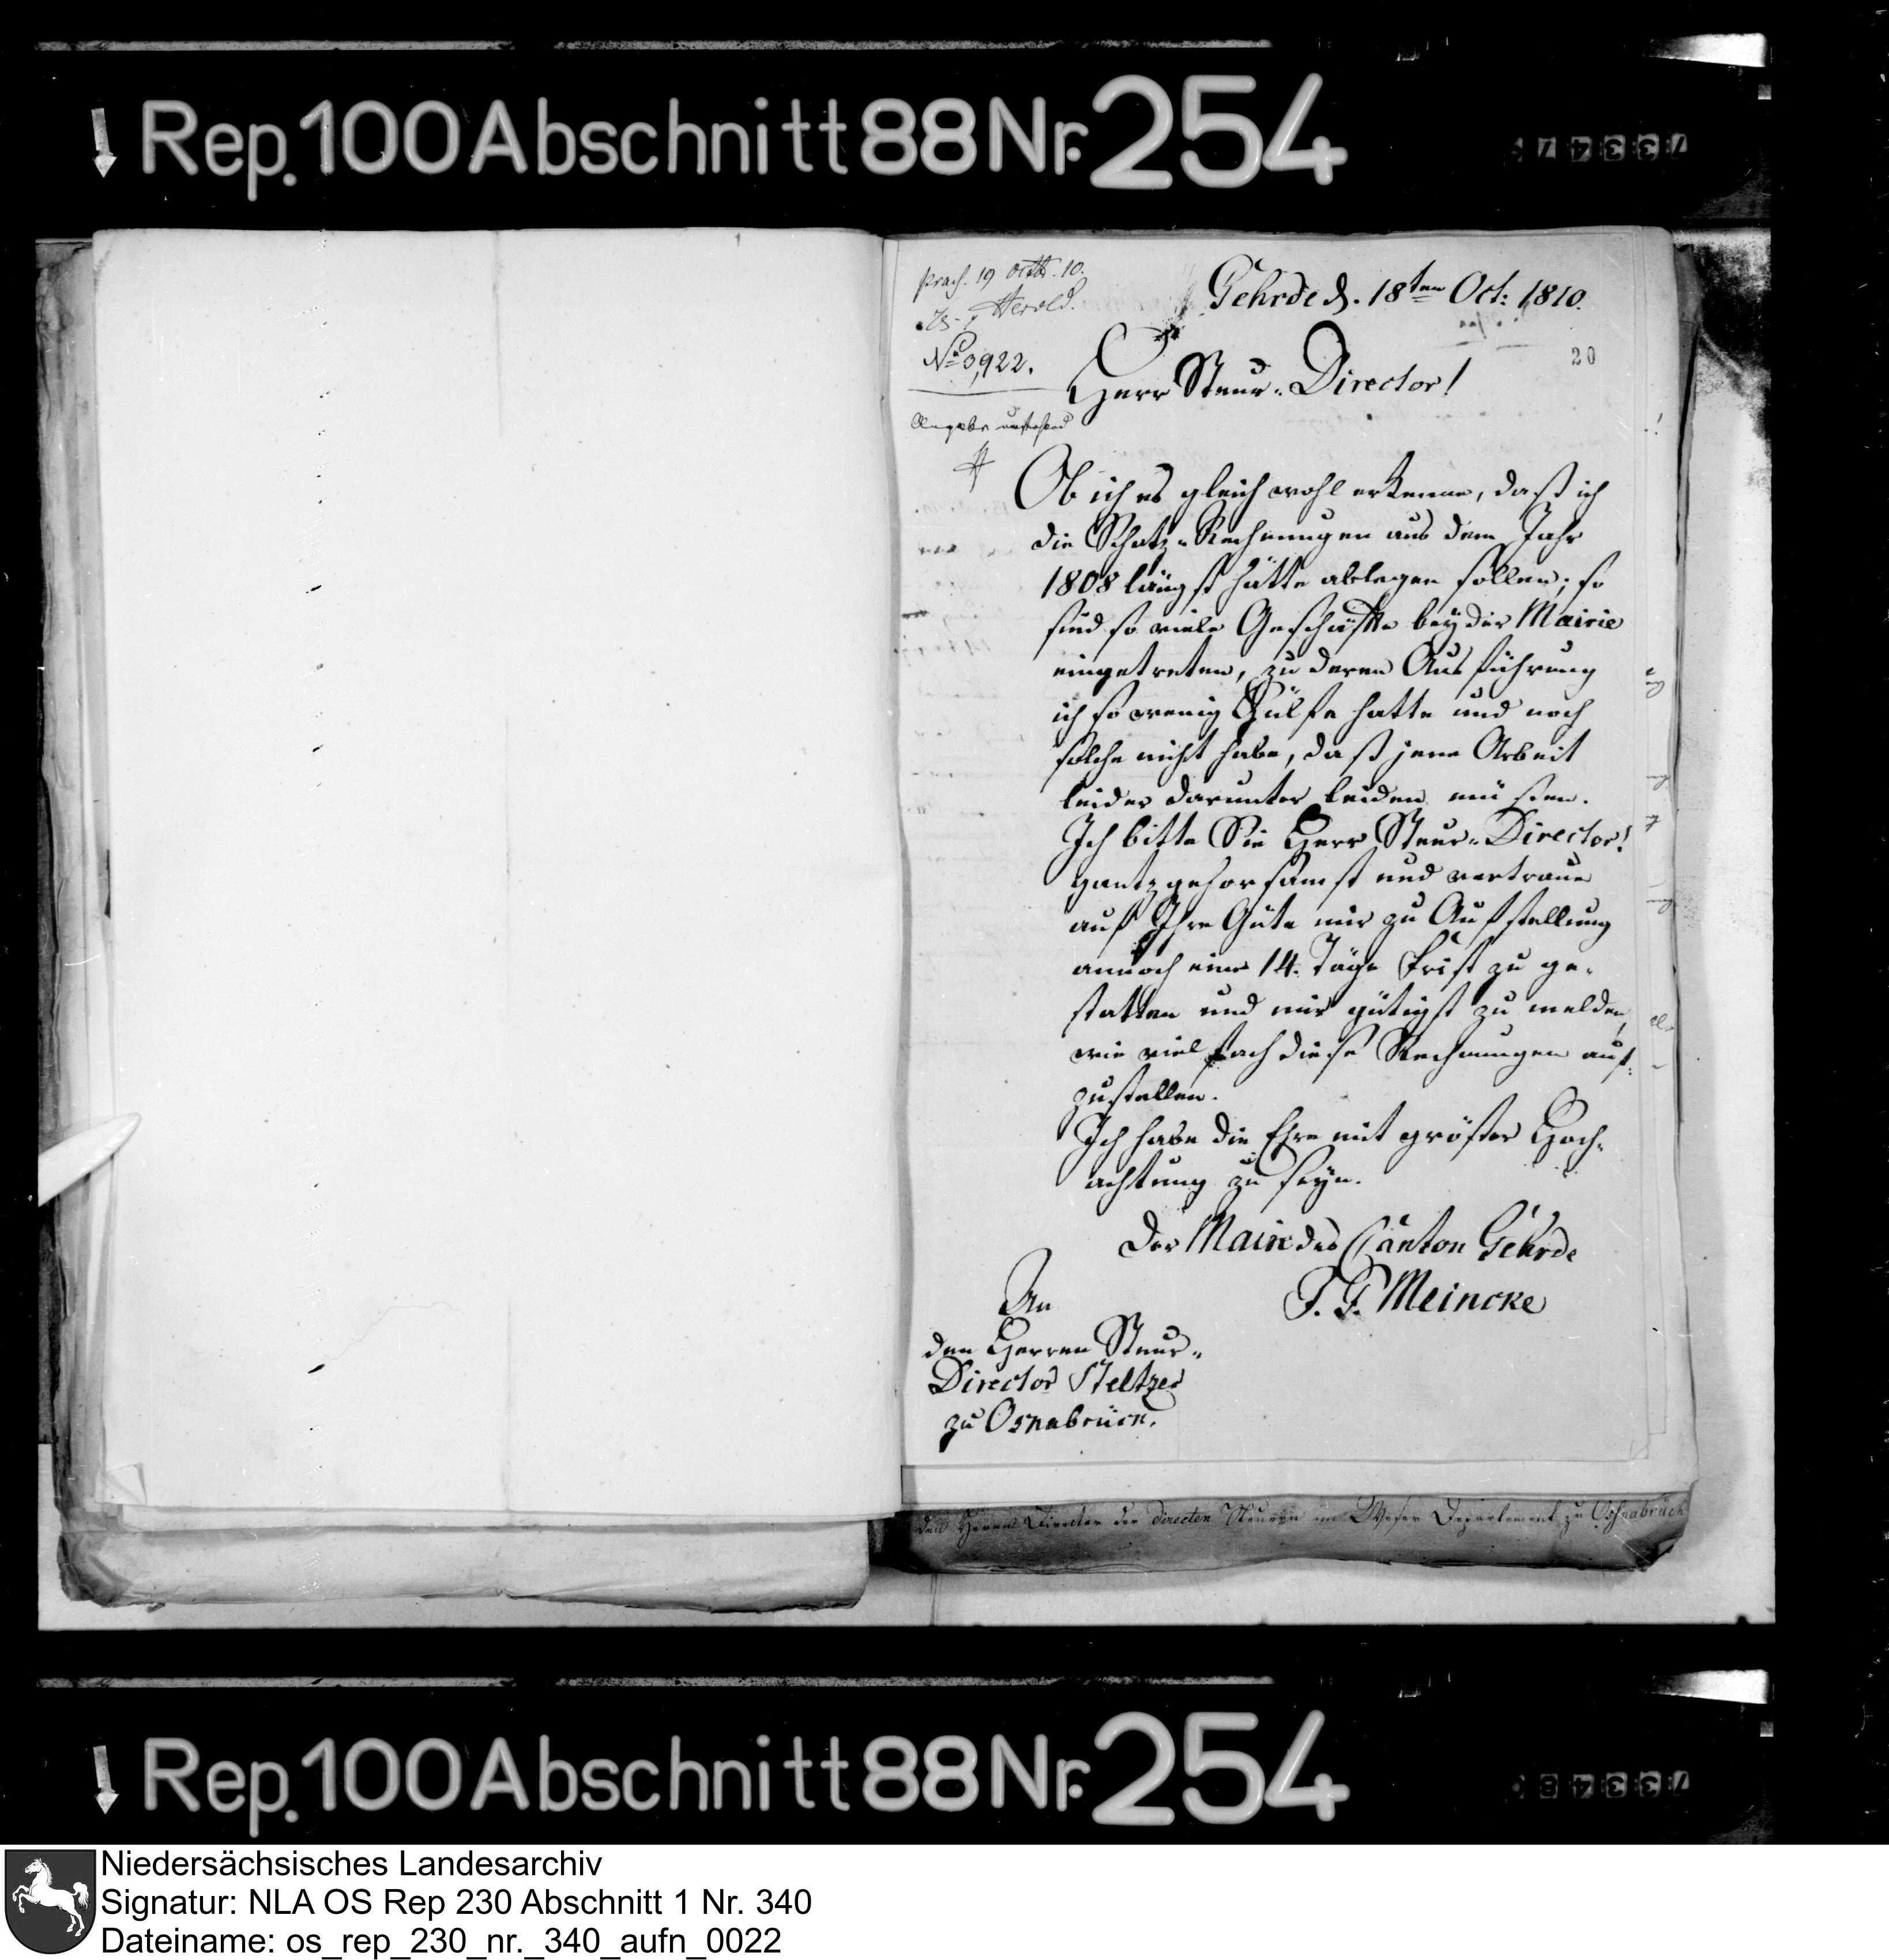 Rep. 100 Abschnitt 88 Nr. 254
præs. 19 Octbr. 10.
Herold.
No 3,922.
Gehrde d. 18ten Oct: 1810.
20
Herr Steur-Director!
Ob ich es gleich wohl erkenne, daß ich
die Schatz-Rechnungen aus dem Jahr
1808 längst hätte ablegen sollen; so
sind so viele Geschäffte bey der Mairie
eingetreten, zu deren Ausführung
ich so wenig Hülfe hatte und noch
solche nicht habe, daß jene Arbeit
leider darunter leiden müßen.
Ich bitte Sie Herr Steur-Director!
gantz gehorsamst und vertraue
auf Ihre Güte mir zu Aufstellung
annoch eine 14. Täge Frist zu ge-
statten und mir gütigst zu melden,
wie vielfach diese Rechnungen auf-
zustellen.
Ich habe die Ehre mit größter Hoch-
achtung zu seyn.
Der Maire des Canton Gehrde
F. F. Meincke
An
den Herren Steur-
Director Steltzer
zu Osnabrück.
den Herrn Director der directen Steuern im Weser Departement zu Osnabrück
Rep. 100 Abschnitt 88 Nr. 254
Niedersächsisches Landesarchiv
Signatur: NLA OS Rep 230 Abschnitt 1 Nr. 340
Dateiname: os_rep_230_nr._340_aufn_0022